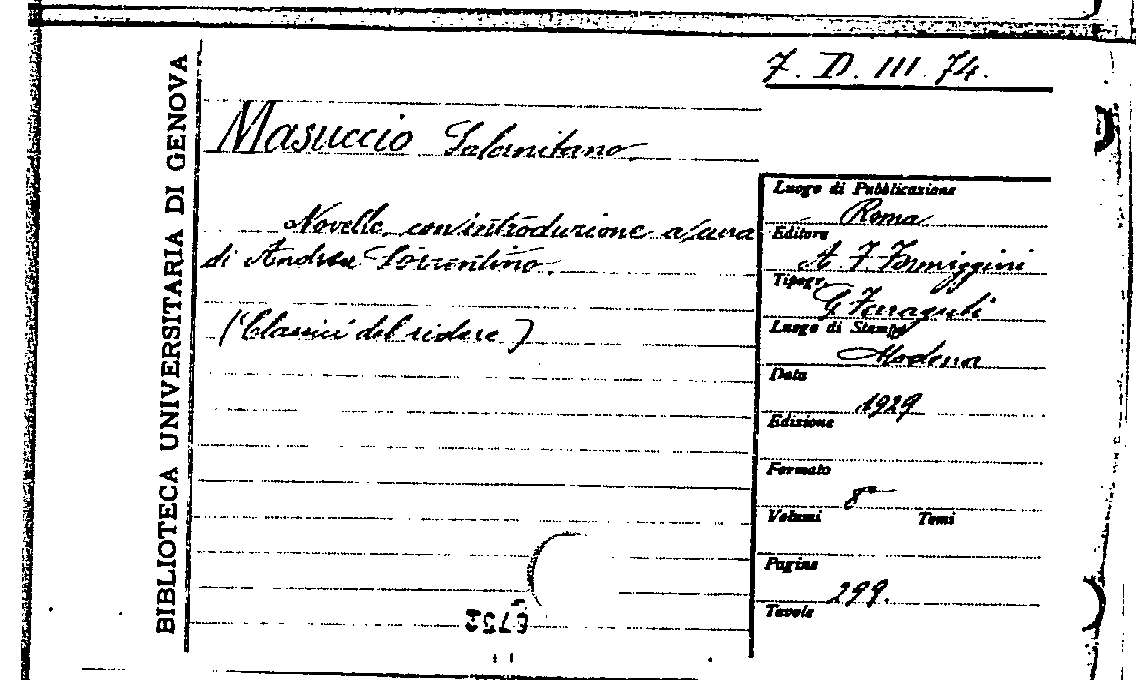 7. D. III. 74.
BIBLIOTECA UNIVERSITARIA DI GENOVA
Masuccio Salernitano
Novelle con introduzione a cura
di Andrea Sorrentino.
(Classici del ridere)
Luogo di Pubblicazione
Roma
Editore
A. F. Formiggini
Tipogr.
G. Ferraguti
Luogo di Stampa
Modena
Data
1929
Edizione
Formato
8°
Volumi Tomi
Pagine
299.
Tavole